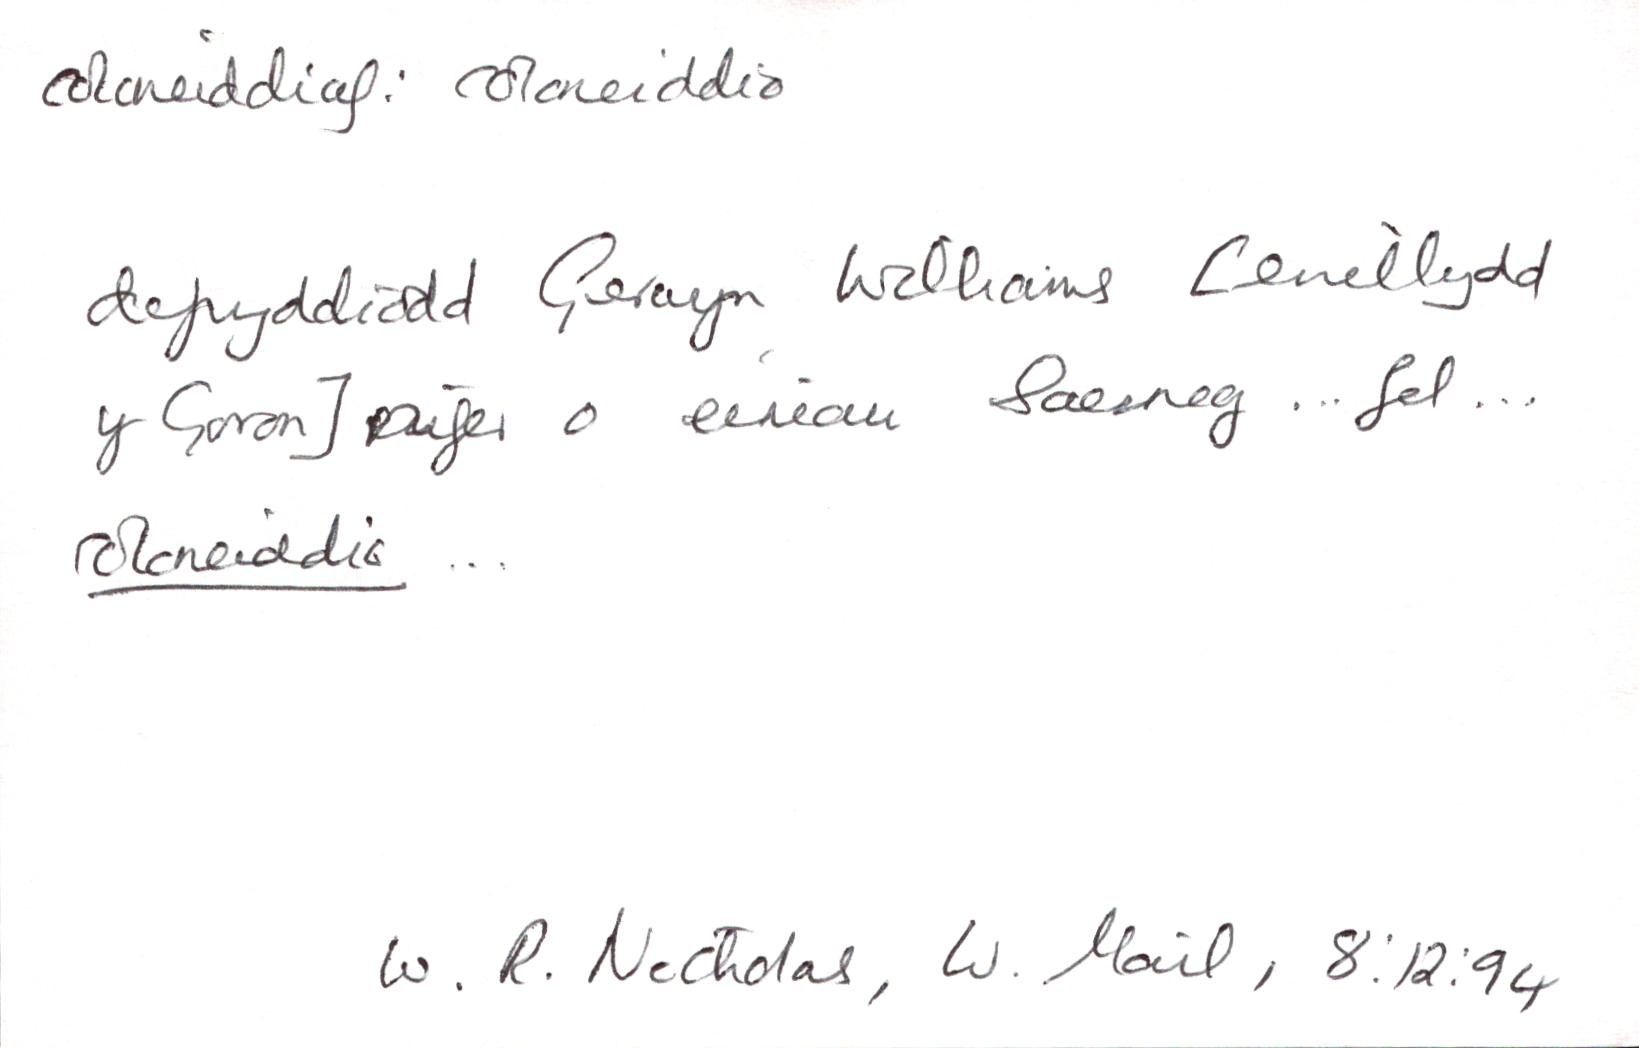 colcneiddiaf: colcneiddio
defnyddiodd Gerwyn Williams [enillydd
y Goron] nifer o eiriau Saesneg ... fel ...
colcneiddio ...
W. R. Nicholas, W. Mail, 8:12:94